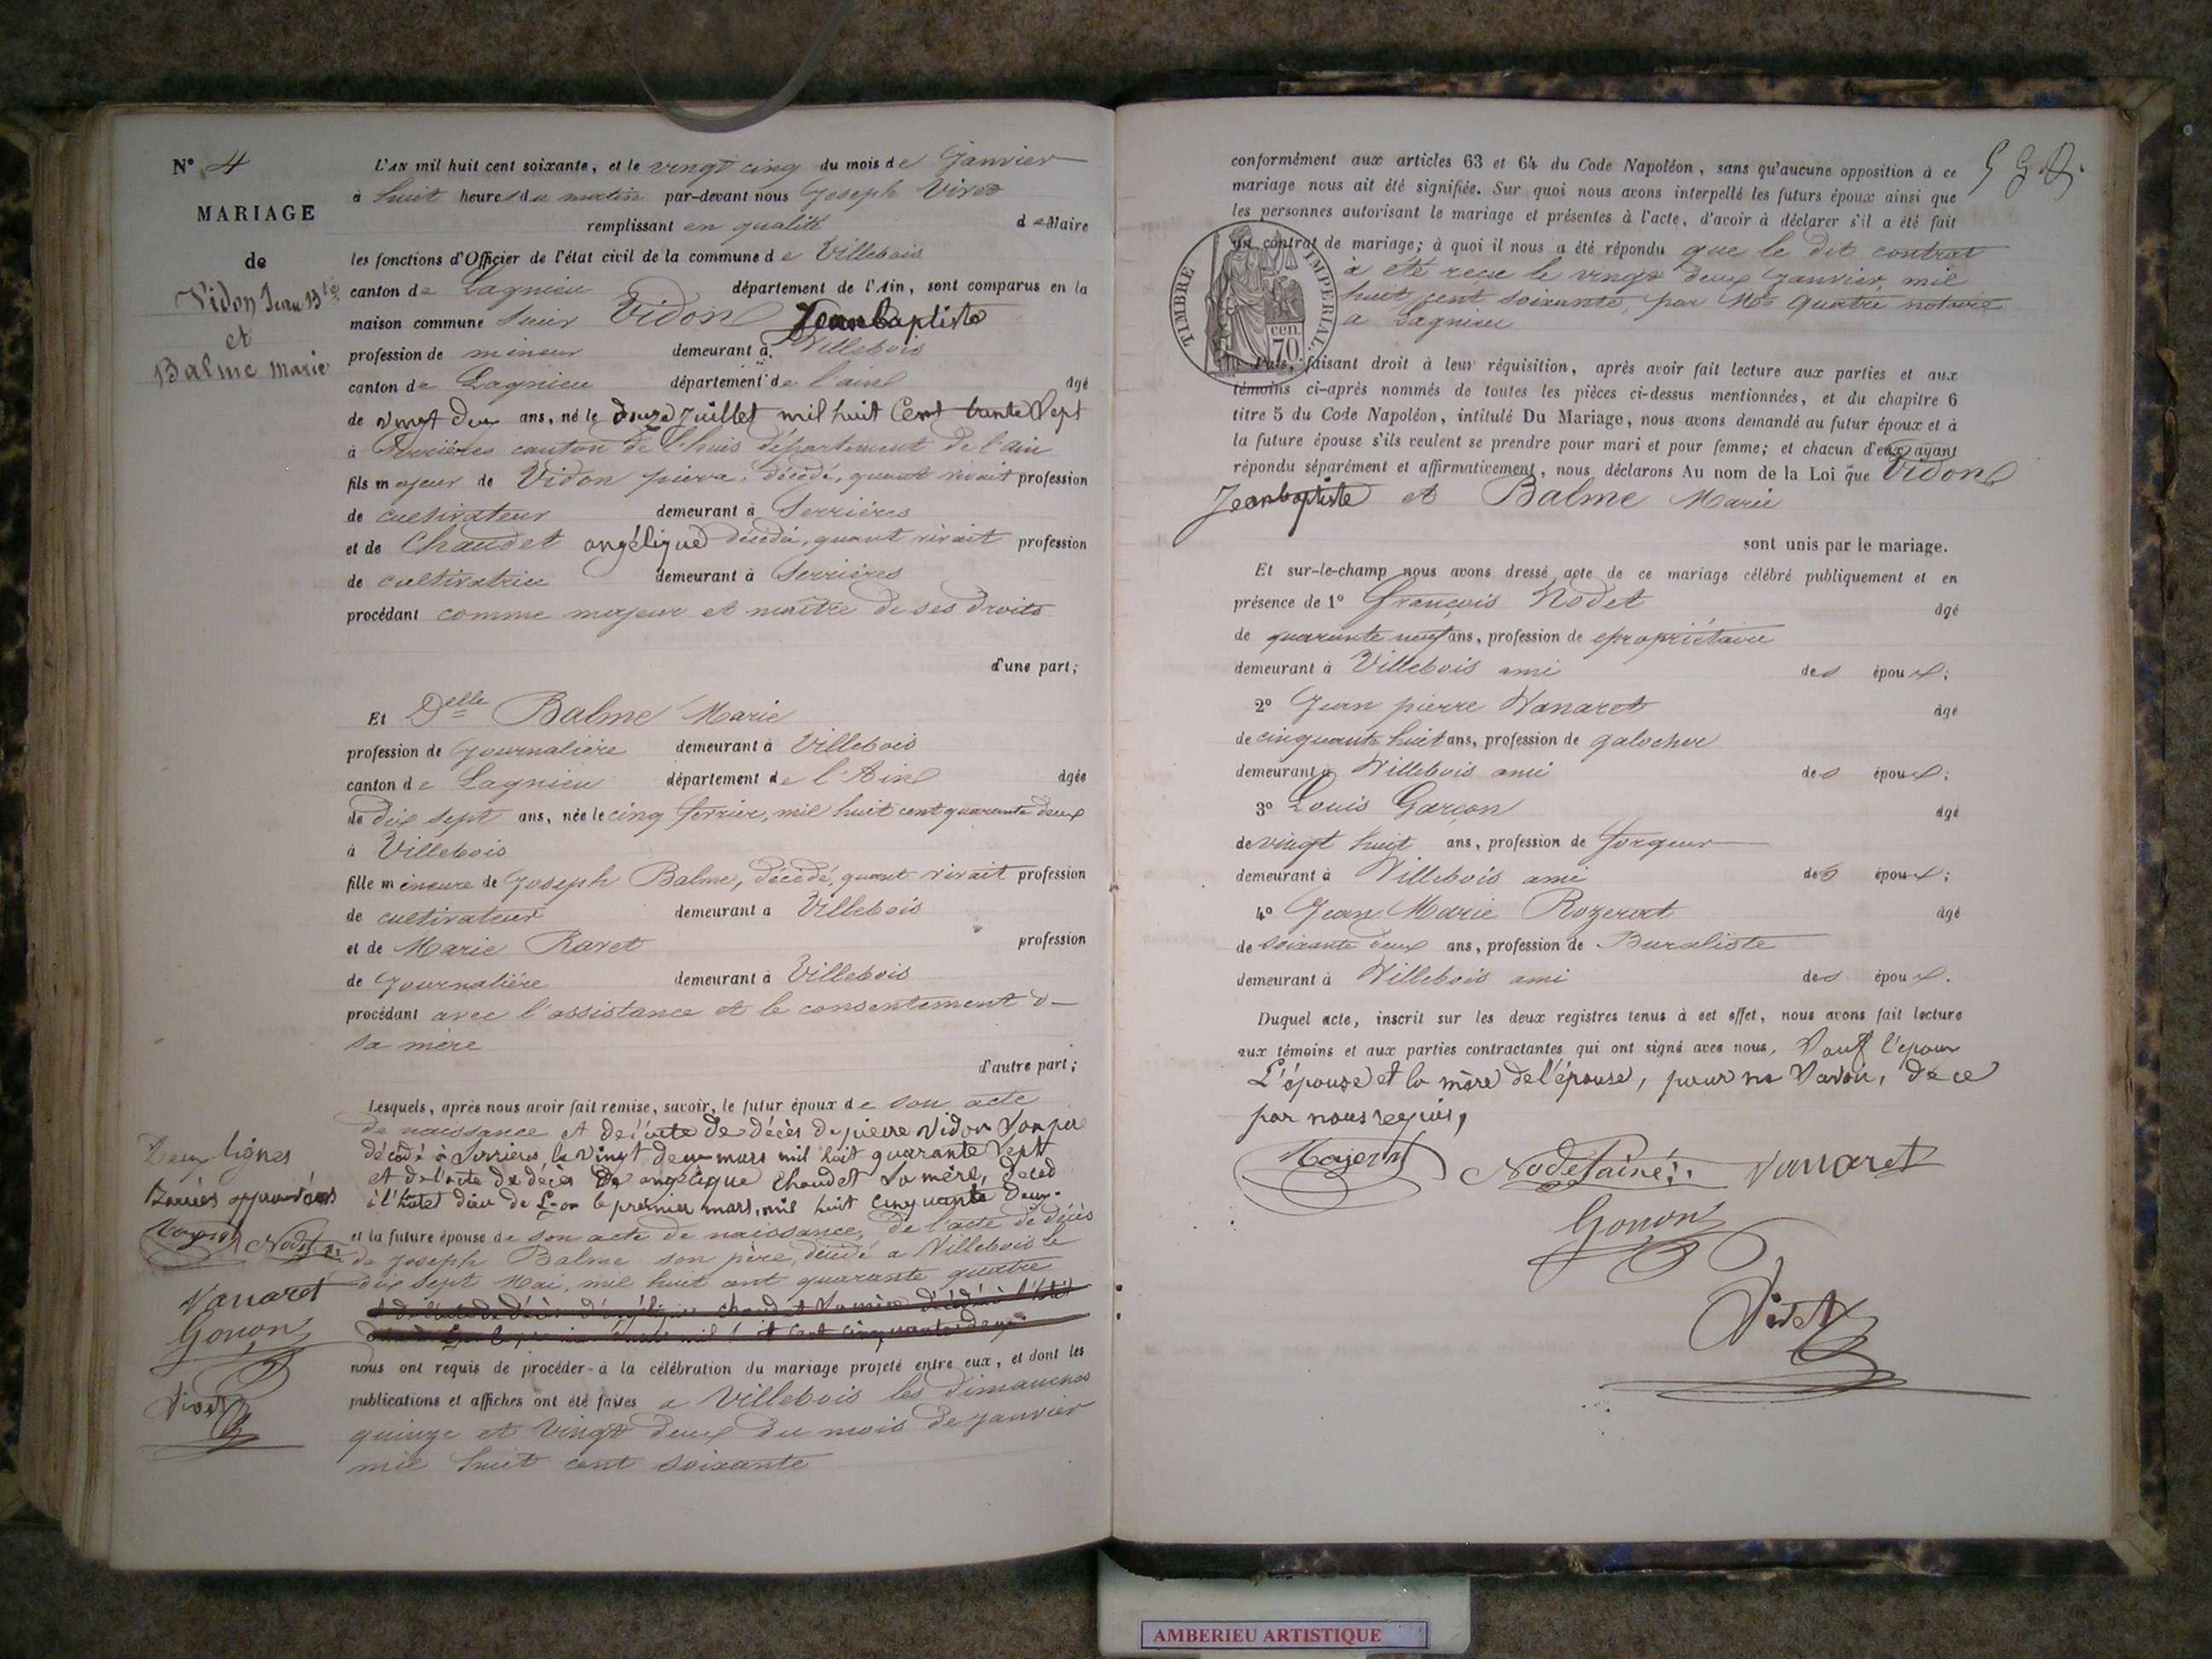 N° 4
MARIAGE
de
Vidon Jean Bte
et
Balme Marie
L'AN mil huit cent soixante, et le vingt cinq du mois de Janvier
à huit heures du matin par-devant nous Joseph Viret
remplissant en qualité de Maire
les fonctions d'Officier de l'état civil de la commune de Villebois
canton de Lagnieu département de l'Ain, sont comparus en la
maison commune Sieur Vidon Jean Baptiste
profession de mineur demeurant à Villebois
canton de Lagnieu département de l'ain âgé
de vingt deux ans, né le douze Juillet mil huit Cent trente Sept
à Serrières canton de L'huis département de l'ain
fils majeur de Vidon pierre, décédé, quant vivait profession
de cultivateur demeurant à Serrières
et de Chaudet angélique décédée, quant vivait profession
de cultivatrice demeurant à Serrières
procédant comme majeur et maître de ses droits
d'une part;
Et Delle Balme Marie
profession de Journalière demeurant à Villebois
canton de Lagnieu département de l'Ain âgée
de dix sept ans, née le cinq fevrier, mil huit cent quarante deux
à Villebois
fille mineure de Joseph Balme, décédé, quant vivait profession
de cultivateur demeurant à Villebois
et de Marie Ravet profession
de Journalière demeurant à Villebois
procédant avec l'assistance et le consentement d
sa mère
d'autre part;
Lesquels, après nous avoir fait remise, savoir, le futur époux de son acte
de naissance et de l'acte de décès de pierre Vidon Son père
décédé à Serrières le vingt deux mars mil huit quarante Sept
et de l'acte de décès de angélique Chaudet Sa mère, deced
à l'hôtel dieu de Lyon le premier mars, mil huit cinquante deux.
et la future épouse de son acte de naissance, de l'acte de décès
de Joseph Balme son père, décédé a Villebois le
dix sept Mai, mil huit cent quarante quatre
et de l'acte de décès d'angélique Chaudet Sa mère décédée à l'hôtel
nous ont requis de procéder à la célébration du mariage projeté entre eux, et dont les
publications et affiches ont été faites a Villebois les dimanches
quinze et vingt deux du mois de Janvier
mil huit cent soixante
Deux lignes
barrées approuvées
Nodet
Vanaret
Gonon
Viret
S G. D.
conformément aux articles 63 et 64 du Code Napoléon, sans qu'aucune opposition à ce
mariage nous ait été signifiée. Sur quoi nous avons interpellé les futurs époux ainsi que
les personnes autorisant le mariage et présentes à l'acte, d'avoir à déclarer s'il a été fait
un contrat de mariage; à quoi il nous a été répondu que le dit contrat
à été reçu le vingt deux Janvier, mil
huit cent soixante, par Me Quatre notaire
a Lagnieu
TIMBRE IMPERIAL
cen.
70
Puis, faisant droit à leur réquisition, après avoir fait lecture aux parties et aux
témoins ci-après nommés de toutes les pièces ci-dessus mentionnées, et du chapitre 6
titre 5 du Code Napoléon, intitulé Du Mariage, nous avons demandé au futur époux et à
la future épouse s'ils veulent se prendre pour mari et pour femme; et chacun d'eux ayant
répondu séparément et affirmativement, nous déclarons Au nom de la Loi que Vidon
Jean baptiste et Balme Marie
sont unis par le mariage.
Et sur-le-champ nous avons dressé acte de ce mariage célébré publiquement et en
présence de 1° François Nodet âgé
de quarante neuf ans, profession de propriétaire
demeurant à Villebois ami des époux;
2° Jean pierre Vanaret âgé
de cinquante huit ans, profession de galocher
demeurant à Villebois ami des époux;
3° Louis Garçon âgé
de vingt huit ans, profession de forgeur
demeurant à Villebois ami des époux;
4° Jean Marie Rozerat âgé
de soixante deux ans, profession de Buraliste
demeurant à Villebois ami des époux.
Duquel acte, inscrit sur les deux registres tenus à cet effet, nous avons fait lecture
aux témoins et aux parties contractantes qui ont signé avec nous, Sauf l'epoux
L'épouse et la mère de l'épouse, pour ne Savoir, de ce
par nous requis,
Nodet ainé Vanaret
Gonon
Viret
AMBERIEU ARTISTIQUE